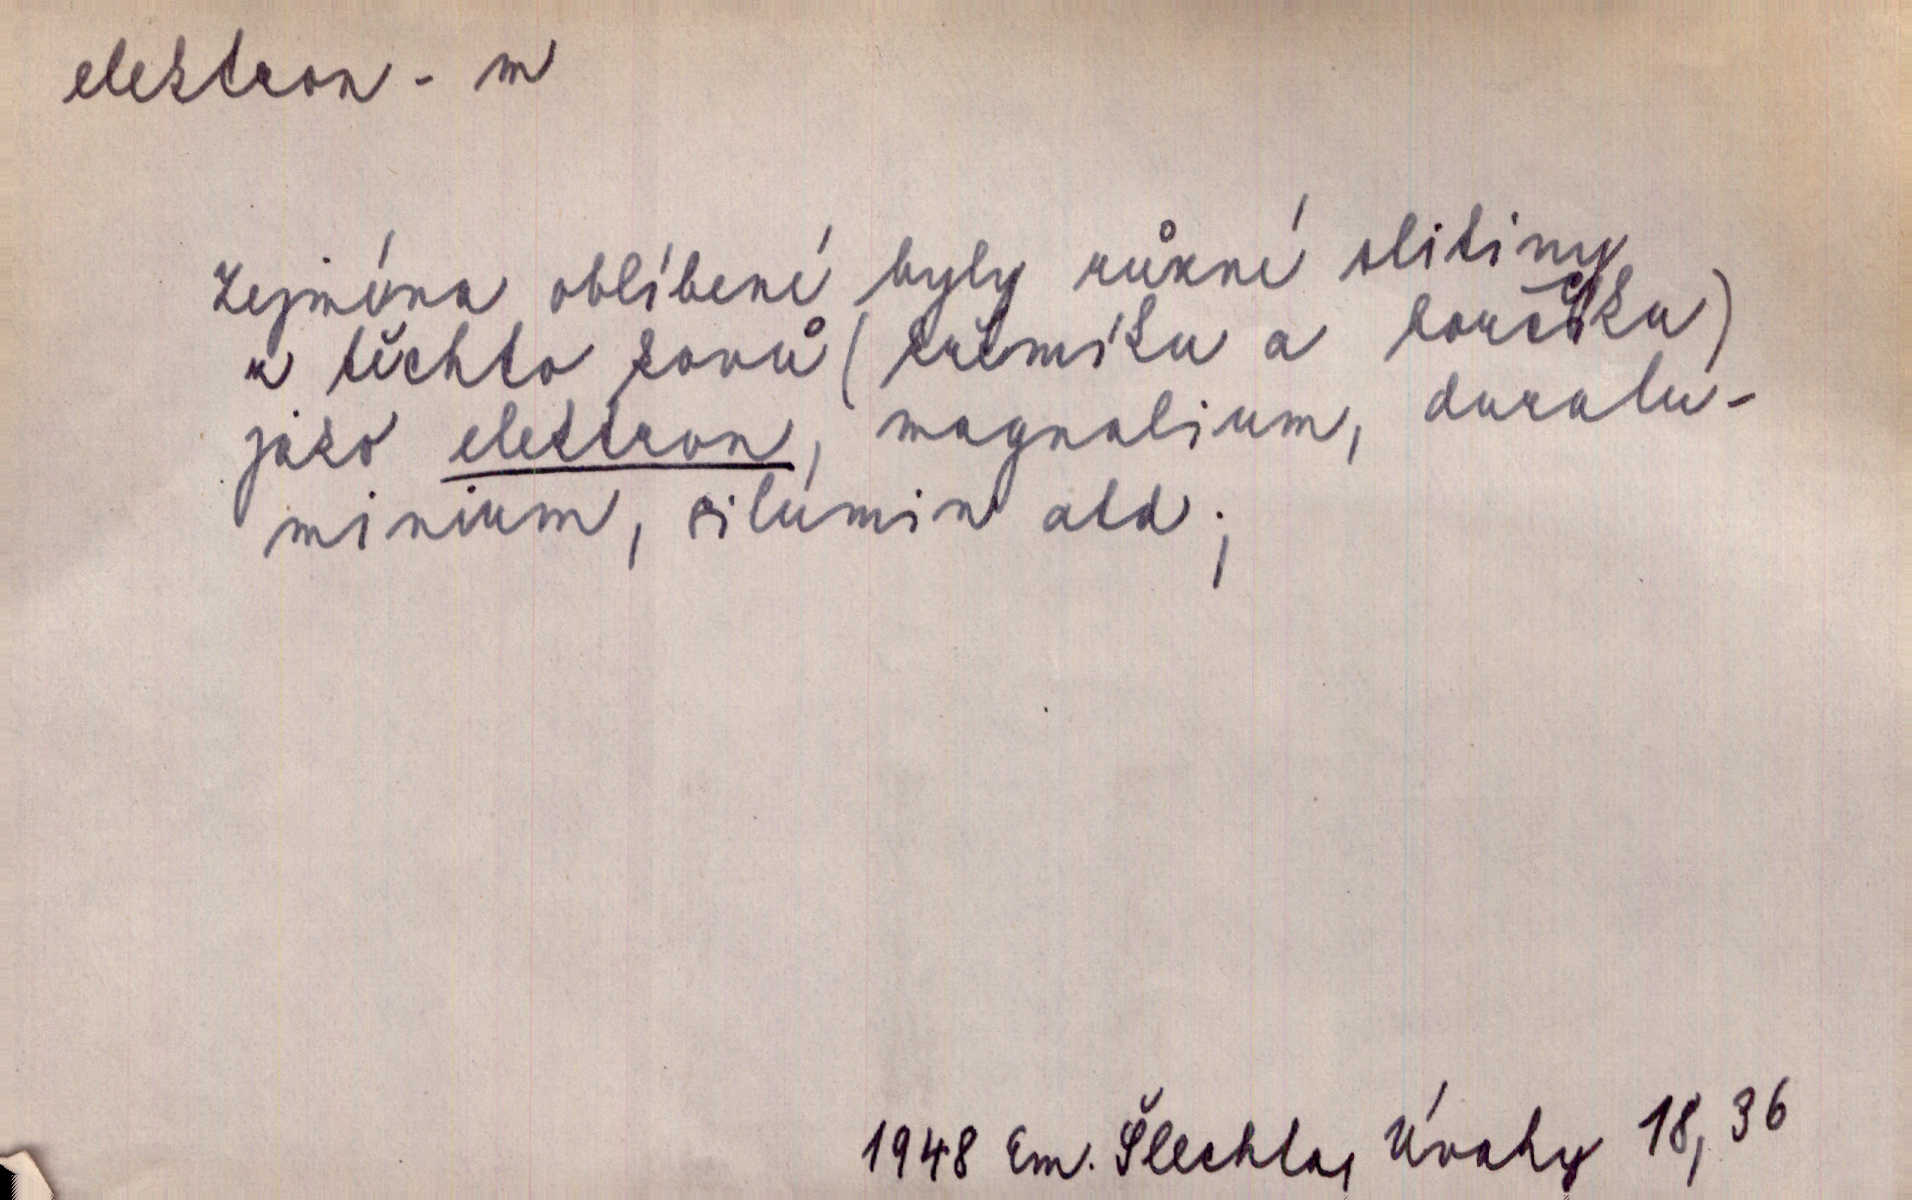 elektron - m
Zejména oblíbené byly různé slitiny
z těchto kovů (křemíku a hořčíku)
jako elektron, magnalium, duralu-
minium, silumin atd.;
1948 Em. Šlechta, Úvahy 18, 36